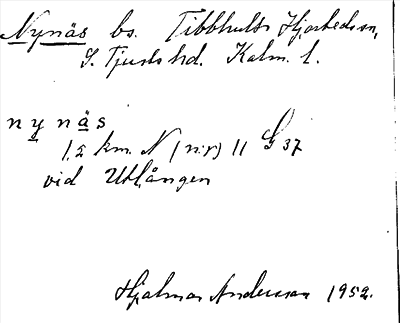 Nynäs bs. Tibbhults Hjorteds sn,
S. Tjusts hd. Kalm. l.
n y n ä s
1,2 km. N (n:r) 11 G 37
vid Utlången
Hjalmar Andersson 1952.